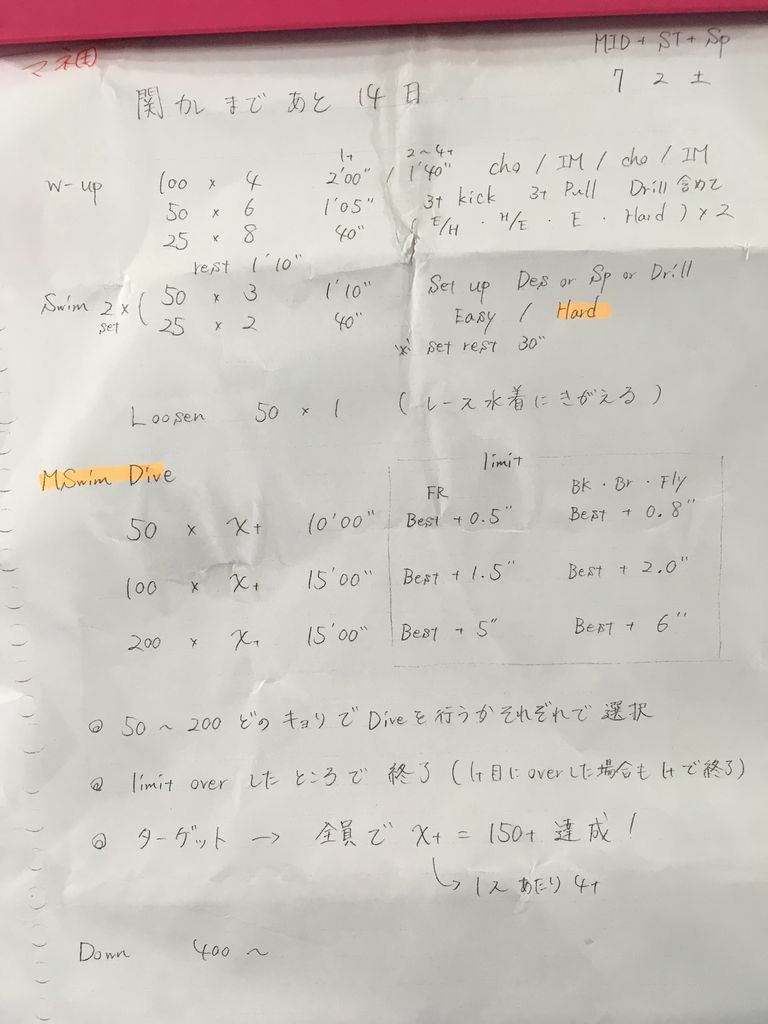 マネ用
MID + ST + Sp
7 2 土
関カレまであと 14日
1t 2～4t
W-up 100 × 4 2'00" / 1'40" cho / IM / cho / IM
50 × 6 1'05" 3t kick 3t Pull Drill含めて
25 × 8 40" (E/H・H/E・E・Hard) × 2
rest 1'10"
Swim 2 × ( 50 × 3 1'10" Set up Des or Sp or Drill
set 25 × 2 40" Easy / Hard
※ set rest 30"
Loosen 50 × 1 (レース水着にきがえる)
M.Swim Dive
limit
FR Bk・Br・Fly
50 × xt 10'00" Best + 0.5" Best + 0.8"
100 × xt 15'00" Best + 1.5" Best + 2.0"
200 × xt 15'00" Best + 5" Best + 6"
◎ 50～200 どのキョリでDiveを行うかそれぞれで選択
◎ limit overしたところで終了(1t目にoverした場合も1tで終了)
◎ ターゲット → 全員で xt = 150t 達成!
↳ 1人あたり 4t
Down 400～